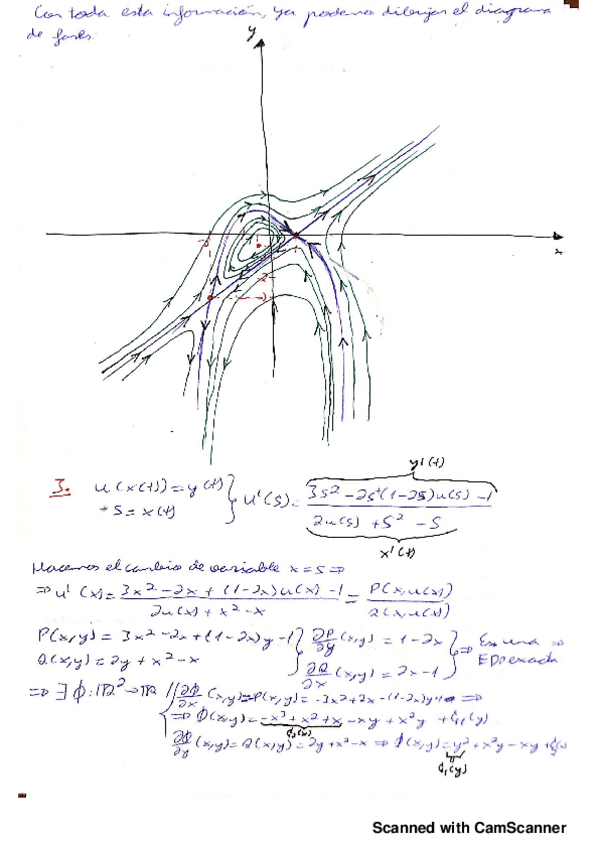 Con toda esta información, ya podemos dibujar el diagrama
de fases.
y
x
y'(t)
3. u(x(t)) = y(t) } u'(s) = (3s² - 2s + (1-2s)u(s) - 1) / (2u(s) + s² - s)
s = x(t)
x'(t)
Hacemos el cambio de variable x = s ⇒
⇒ u'(x) = (3x² - 2x + (1-2x)u(x) - 1) / (2u(x) + x² - x) = P(x,u(x)) / Q(x,u(x))
P(x,y) = 3x² - 2x + (1-2x)y - 1 } ∂P/∂y (x,y) = 1-2x } ⇒ Es una ⇒
Q(x,y) = 2y + x² - x ∂Q/∂x (x,y) = 2x-1 EDO exacta
⇒ ∃ ϕ: ℝ² → ℝ // ∂ϕ/∂x (x,y) = P(x,y) = -3x² + 2x - (1-2x)y + ⇒
⇒ ϕ(x,y) = -x³ + x² + x - xy + x²y + ϕ₁(y)
ϕ₂(x)
∂ϕ/∂y (x,y) = Q(x,y) = 2y + x² - x ⇒ ϕ(x,y) = y² + x²y - xy +
ϕ₁(y)
Scanned with CamScanner